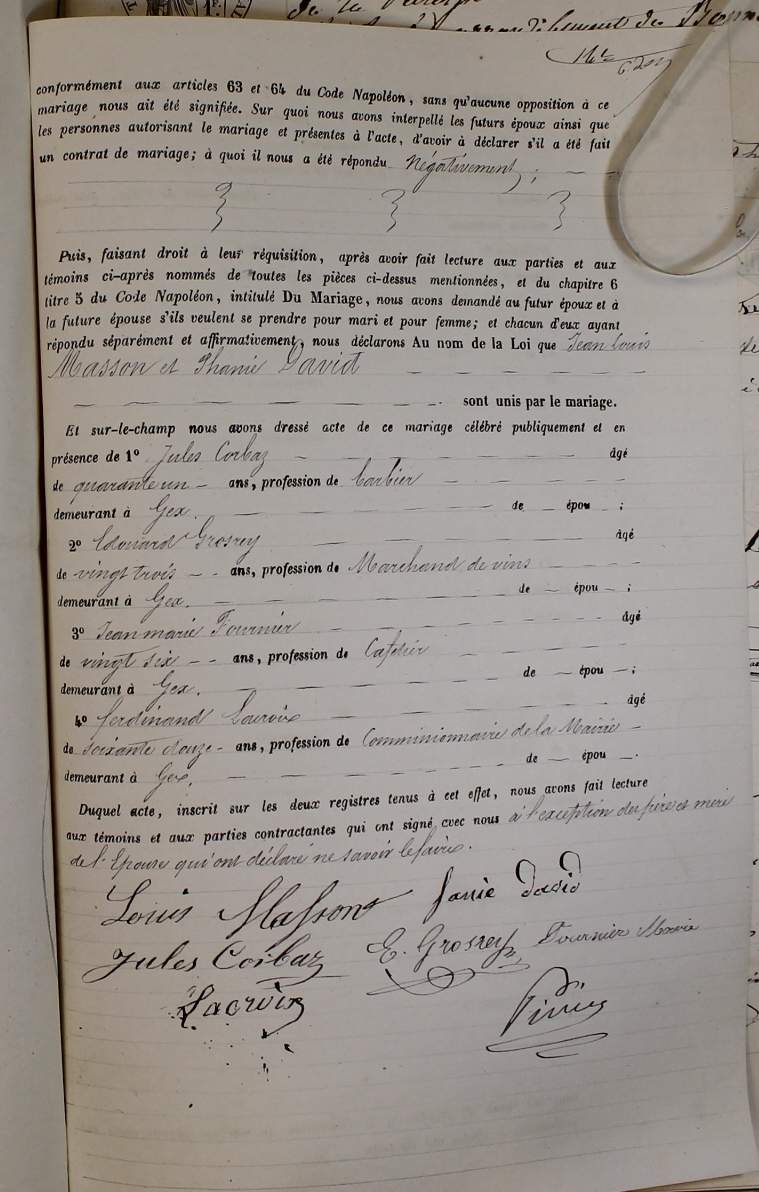 de la
arrondissement de Bonne
conformément aux articles 63 et 64 du Code Napoléon, sans qu'aucune opposition à ce
mariage nous ait été signifiée. Sur quoi nous avons interpellé les futurs époux ainsi que
les personnes autorisant le mariage et présentes à l'acte, d'avoir à déclarer s'il a été fait
un contrat de mariage; à quoi il nous a été répondu Négativement;
Puis, faisant droit à leur réquisition, après avoir fait lecture aux parties et aux
témoins ci-après nommés de toutes les pièces ci-dessus mentionnées, et du chapitre 6
titre 5 du Code Napoléon, intitulé Du Mariage, nous avons demandé au futur époux et à
la future épouse s'ils veulent se prendre pour mari et pour femme; et chacun d'eux ayant
répondu séparément et affirmativement, nous déclarons Au nom de la Loi que Jean Louis
Masson et Phanie David
sont unis par le mariage.
Et sur-le-champ nous avons dressé acte de ce mariage célébré publiquement et en
présence de 1º Jules Corbaz âgé
de quarante un ans, profession de barbier
demeurant à Gex. de épou ;
2º Edouard Grosrey âgé
de vingt trois ans, profession de Marchand de vins
demeurant à Gex. de épou ;
3º Jean marie Fournier âgé
de vingt six ans, profession de Cafetier
demeurant à Gex. de épou ;
4º ferdinand Lacroix âgé
de soixante douze ans, profession de Comminionnaire de la Mairie
demeurant à Gex. de épou .
Duquel acte, inscrit sur les deux registres tenus à cet effet, nous avons fait lecture
aux témoins et aux parties contractantes qui ont signé avec nous à l'exception des père et mère
de l'Epouse qui ont déclaré ne savoir le faire.
Louis Masson fanie David
Jules Corbaz E. Grosrey Fournier Marie
Lacroix